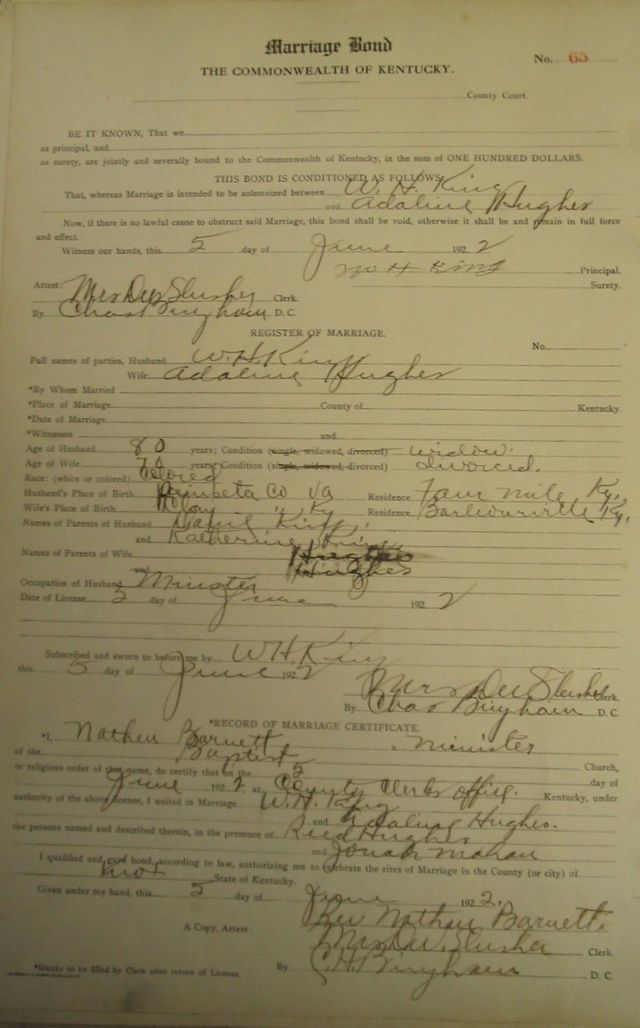 Marriage Bond
No. 65
THE COMMONWEALTH OF KENTUCKY.
County Court.
BE IT KNOWN, That we
as principal, and
as surety, are jointly and severally bound to the Commonwealth of Kentucky, in the sum of ONE HUNDRED DOLLARS.
THIS BOND IS CONDITIONED AS FOLLOWS
That, whereas Marriage is intended to be solemnized between W. H. King
and Adaline Hughes
Now, if there is no lawful cause to obstruct said Marriage, this bond shall be void, otherwise it shall be and remain in full force
and effect.
Witness our hands, this 5 day of June 1922
W H King Principal,
Surety.
Attest: Mrs Dee Slusher Clerk.
By Chas Bingham D. C.
REGISTER OF MARRIAGE.
No.
Full names of parties, Husband W. H. King
Wife Adaline Hughes
*By Whom Married
*Place of Marriage County of Kentucky.
*Date of Marriage
*Witnesses and
Age of Husband 80 years; Condition (single, widowed, divorced) widow.
Age of Wife 70 years Condition (single, widowed, divorced) divorced.
Race: (white or colored) Colored
Husband's Place of Birth Co Va Residence Four mile Ky,
Wife's Place of Birth Clay " Ky Residence Barbourville Ky,
Names of Parents of Husband King,
and Katherine King
Names of Parents of Wife Hughes
and Hughes
Occupation of Husband Minister
Date of License 5 day of June 1922
Subscribed and sworn to before me by W H King
this 5 day of June 1922
Mrs Dee Slusher Clerk.
By Chas Bingham D. C.
*RECORD OF MARRIAGE CERTIFICATE.
*I, Nathen Barnett, Minister
of the Baptist Church,
or religious order of that name, do certify that on the 5 day of
June 1922 at County Clerks office. Kentucky, under
authority of the above license, I united in Marriage W. H. King
and Adaline Hughes.
the persons named and described therein, in the presence of Reed Hughes
and Jonah Mahan
I qualified and gave bond, according to law, authorizing me to celebrate the rites of Marriage in the County (or city) of
Knox State of Kentucky.
Given under my hand, this 5 day of June 1922.
Rev Nathan Barnett.
A Copy, Attest: Mrs Dee Slusher Clerk.
*Blanks to be filled by Clerk after return of License. By C. H. Bingham D. C.